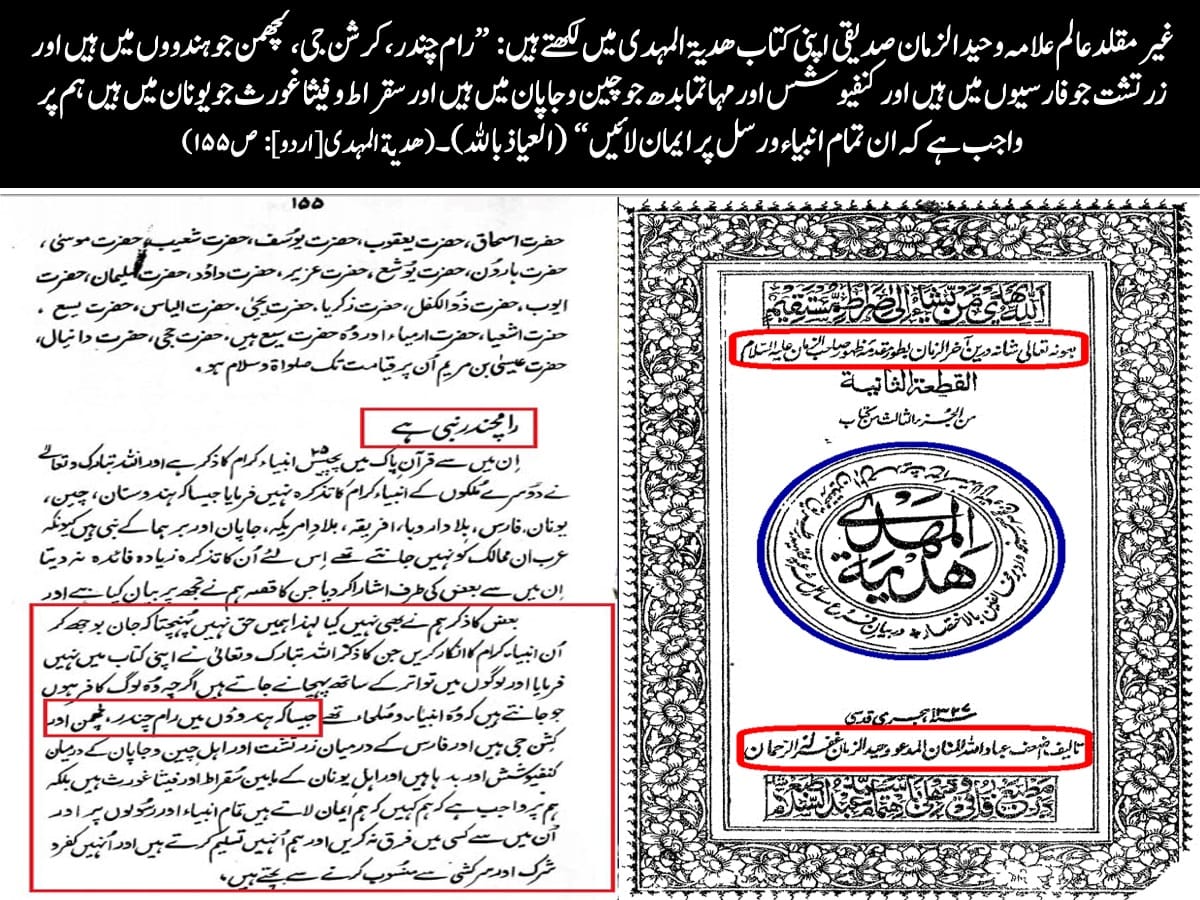 غیر مقلد عالم علامہ وحید الزمان صدیقی اپنی کتاب ھدیۃ المہدی میں لکھتے ہیں: ”رام چندر، کرشن جی، لچھمن جو ہندووں میں ہیں اور
زرتشت جو فارسیوں میں ہیں اور کنفیوشس اور مہاتما بدھ جو چین و جاپان میں ہیں اور سقراط و فیثا غورث جو یونان میں ہیں ہم پر
واجب ہے کہ ان تمام انبیاء و رسل پر ایمان لائیں“ (العیاذ باللہ)۔ (ھدیۃ المہدی[اردو]: ص۱۵۵)
۱۵۵
حضرت اسحاق، حضرت یعقوب، حضرت یوسف، حضرت شعیب، حضرت موسیٰ،
حضرت ہارون، حضرت یوشع، حضرت عزیر، حضرت داؤد، حضرت سلیمان، حضرت
ایوب، حضرت ذوالکفل، حضرت زکریا، حضرت یحیٰی، حضرت الیاس، حضرت یسع،
حضرت اشعیا، حضرت ارمیاء اور وُہ حضرت یسع ہیں، حضرت حجی، حضرت دانیال،
حضرت عیسیٰ بن مریم اُن پر قیامت تک صلواۃ و سلام ہو۔
رامچندر نبی ہے
اِن میں سے قرآنِ پاک میں پچیس ۲۵ انبیاء کرام کا ذکر ہے اور اللہ تبارک و تعالٰے
نے دُوسرے مُلکوں کے انبیاء کرام کا تذکرہ نہیں فرمایا جیسا کہ ہندوستان، چین،
یونان، فارس، بلادِ اروبا، افریقہ، بلادِ امریکہ، جاپان اور برہما کے نبی ہیں کیونکہ
عرب اِن ممالک کو نہیں جانتے تھے اِس لئے اُن کا تذکرہ زیادہ فائدہ نہ دیتا
اِن میں سے بعض کی طرف اشارا کر دیا جن کا قصہ ہم نے تجھ پر بیان کیا ہے اور
بعض کا ذکر ہم نے بھی نہیں کیا لہٰذا ہمیں حق نہیں پہنچتا کہ جان بوجھ کر
اُن انبیاء کرام کا انکار کریں جن کا ذکر اللہ تبارک و تعالیٰ نے اپنی کتاب میں نہیں
فرمایا اور لوگوں میں تواتر کے ساتھ پہچانے جاتے ہیں اگرچہ وُہ لوگ کافر ہوں
جو جانتے ہیں کہ وُہ انبیاء و صُلحاء تھے جیسا کہ ہندوؤں میں رام چندر، لچھمن اور
کشن جی ہیں اور فارس کے درمیان زرتشت اور اہلِ چین و جاپان کے درمیان
کنفیوکشش اور بدہا ہیں اور اہلِ یونان کے مابین سُقراط اور فیثا غورث ہیں بلکہ
ہم پر واجب ہے کہ ہم کہیں کہ ہم ایمان لاتے ہیں تمام انبیاء اور رسُولوں پر اور
اُن میں سے کسی میں فرق نہ کریں اور ہم اُنہیں تسلیم کرتے ہیں اور اُنہیں کفر و
شرک اور سرکشی سے منسُوب کرنے سے بچتے ہیں،
اللہ یھدی من یشاء الی صراط مستقیم
بعونہ تعالی شانہ درین آخر الزمان بطور مقدمہ ظہور صاحب الزمان علیہ السلام
القطعۃ الثانیۃ
من الجزء الثالث من کتاب
ھدیۃ المھدی
۱۳۲۷ ہجری قدسی
تالیف اضعف عباد اللہ المنان المدعو وحید الزمان غفر لہ الرحمان